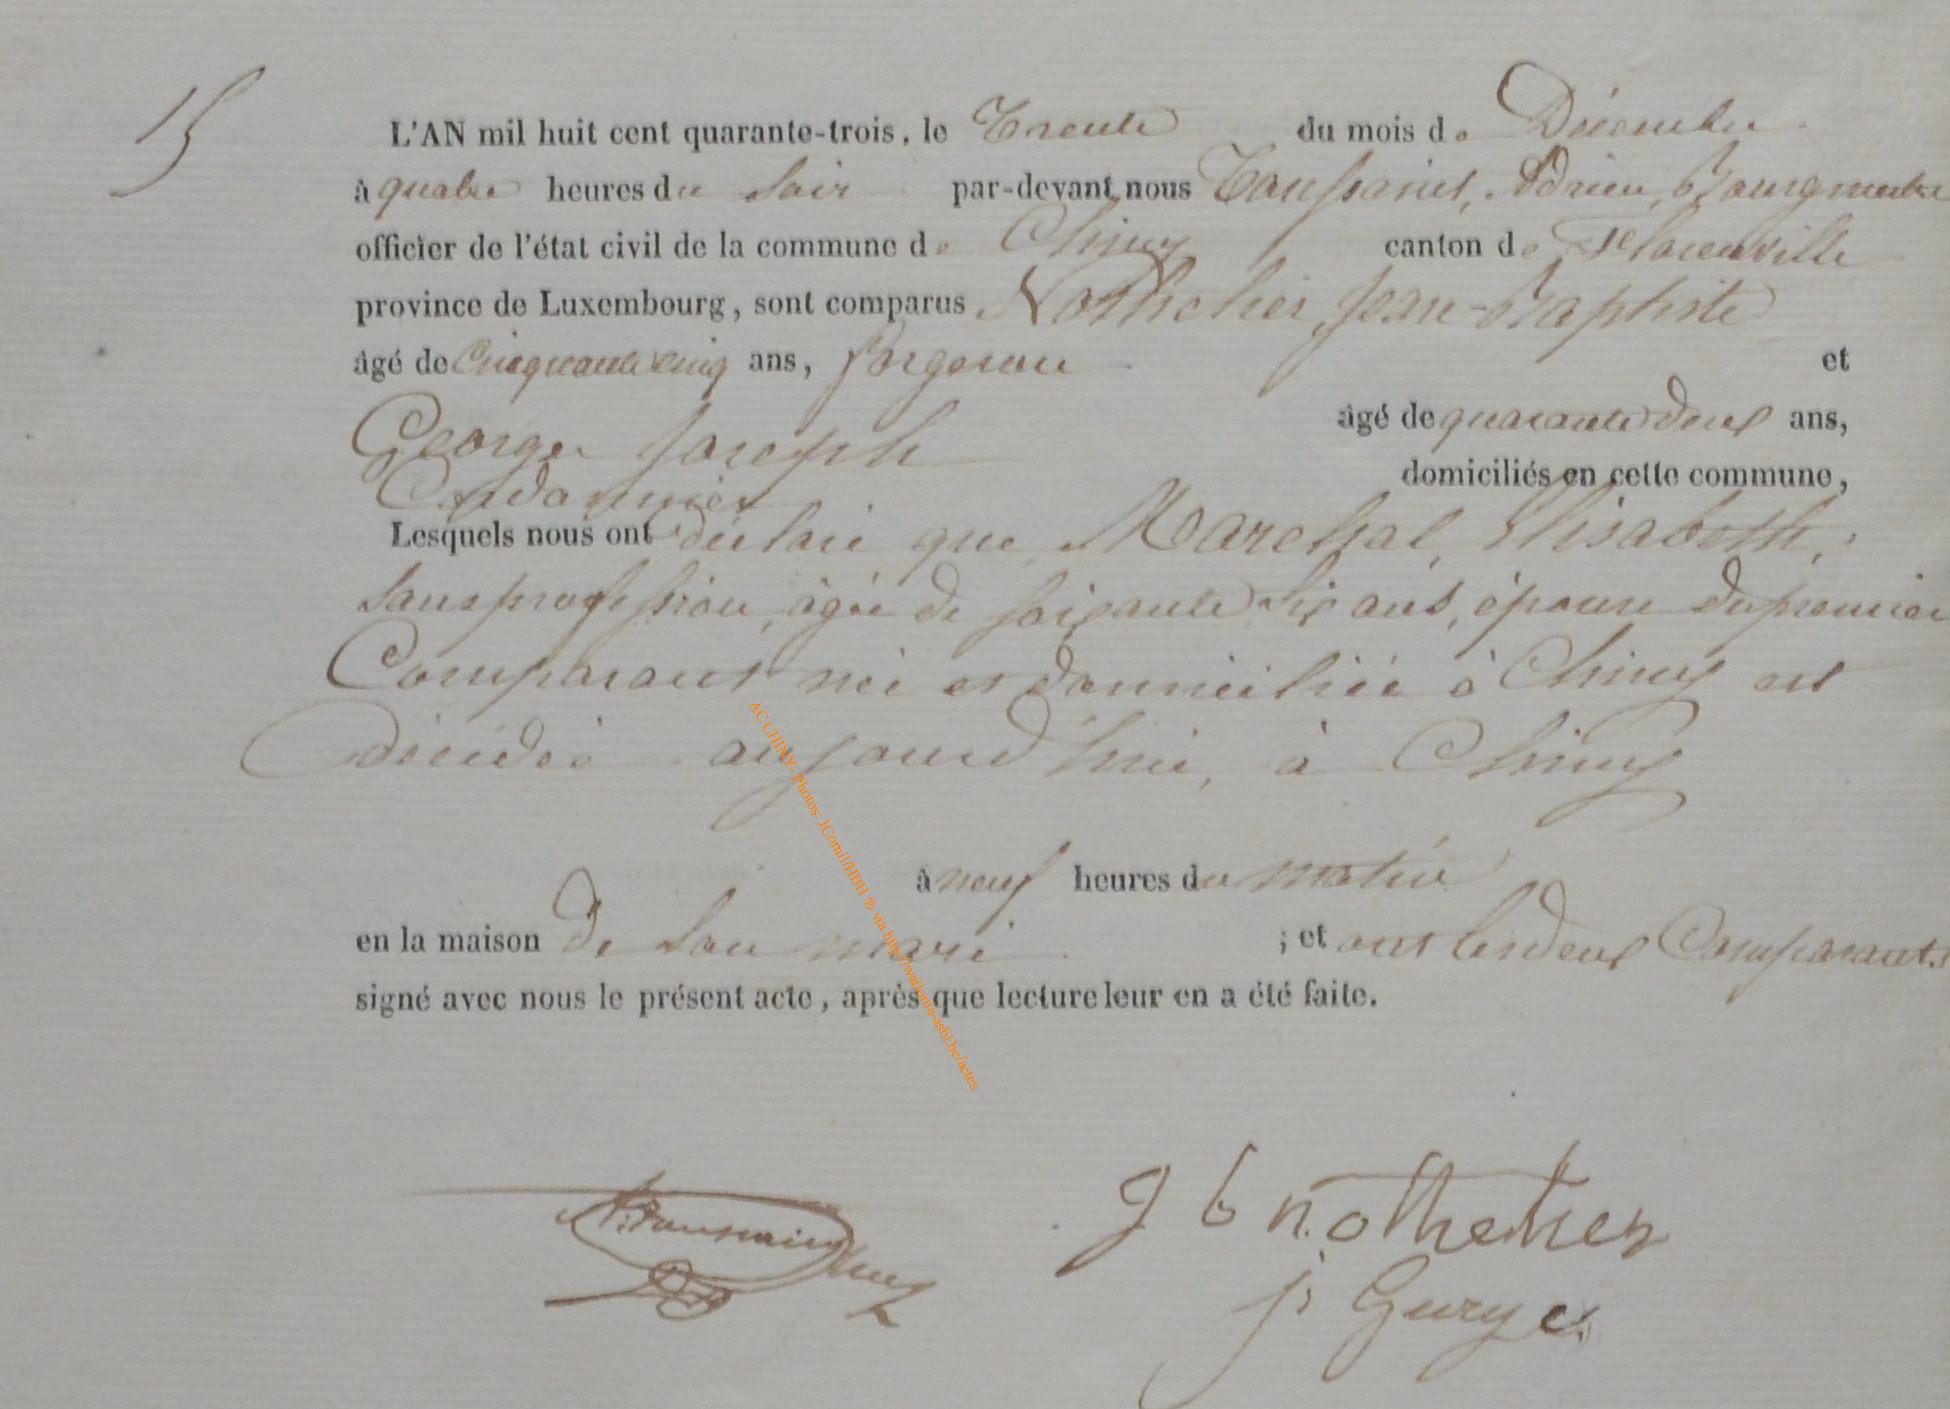 15
L'AN mil huit cent quarante-trois, le Trente du mois de Décembre
à quatre heures du Soir par-devant nous Toussaint, Adrien, Bourgmestre
officier de l'état civil de la commune de Chiny canton de Florenville
province de Luxembourg, sont comparus Jean-Baptiste
âgé de Cinquante cinq ans, forgeron et
George Joseph âgé de quarante deux ans,
Cordonnier domiciliés en cette commune,
Lesquels nous ont déclaré que Marechal, Elisabeth,
sans profession, âgée de soixante six ans, épouse du premier
Comparant née et domiciliée à Chiny est
décédée aujourd'hui, à Chiny
à neuf heures du matin
en la maison de son mari ; et ont les deux Comparants
signé avec nous le présent acte, après que lecture leur en a été faite.
AC CHINY- Photos: JCornil/HBH ® via http://wallonia-asbl.be/actes